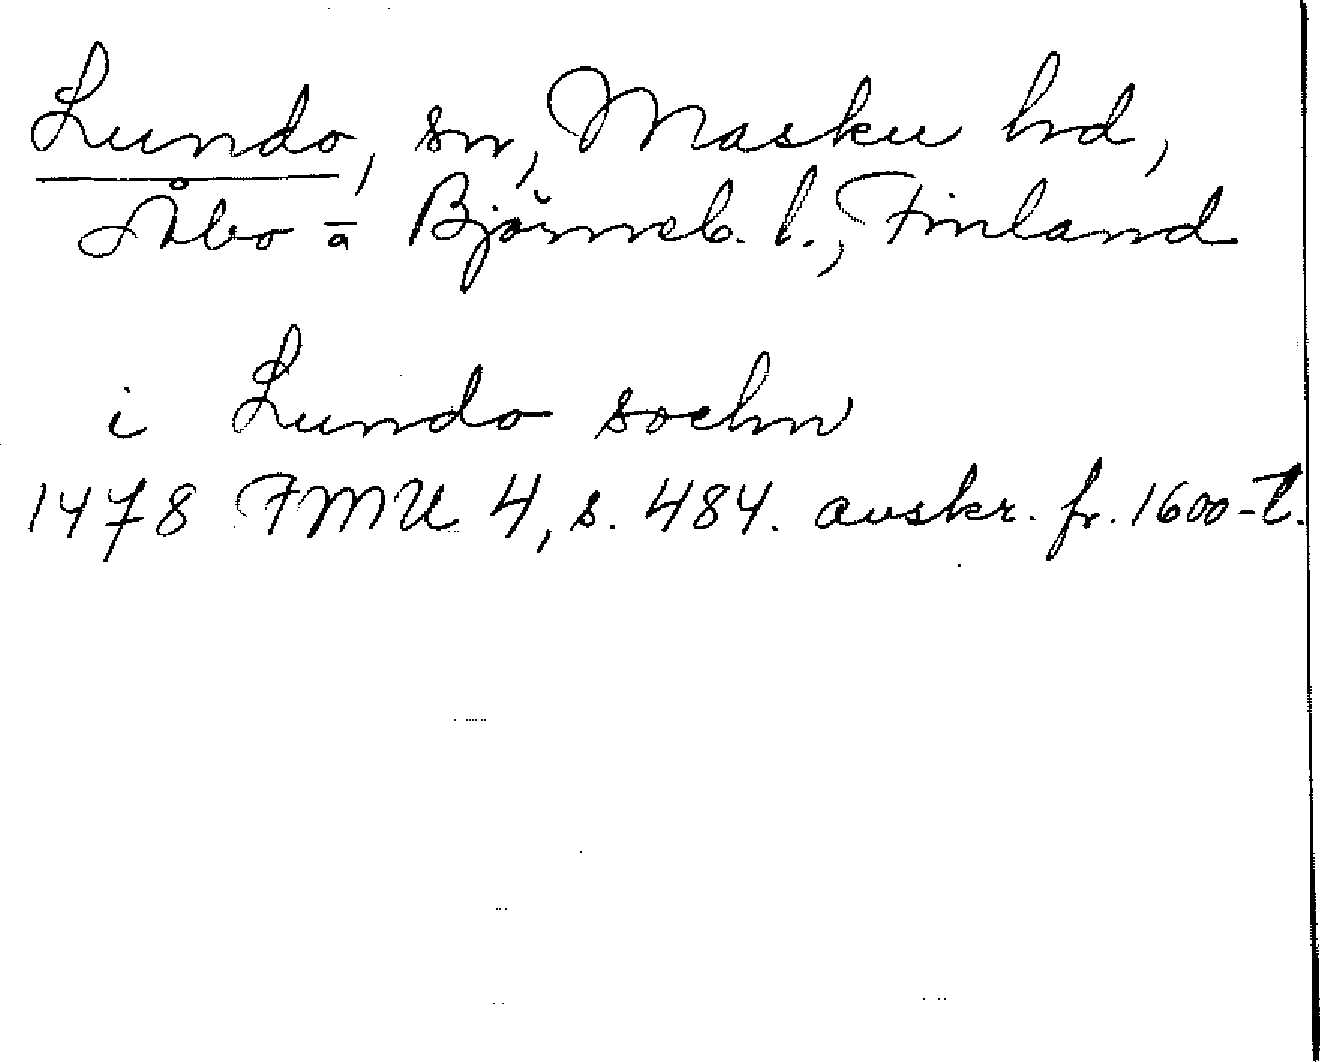 Lundo, sn, Masku hd,
Åbo ā Björneb. l., Finland
i Lundo sochn
1478 FMU 4, s. 484. avskr. fr. 1600-t.